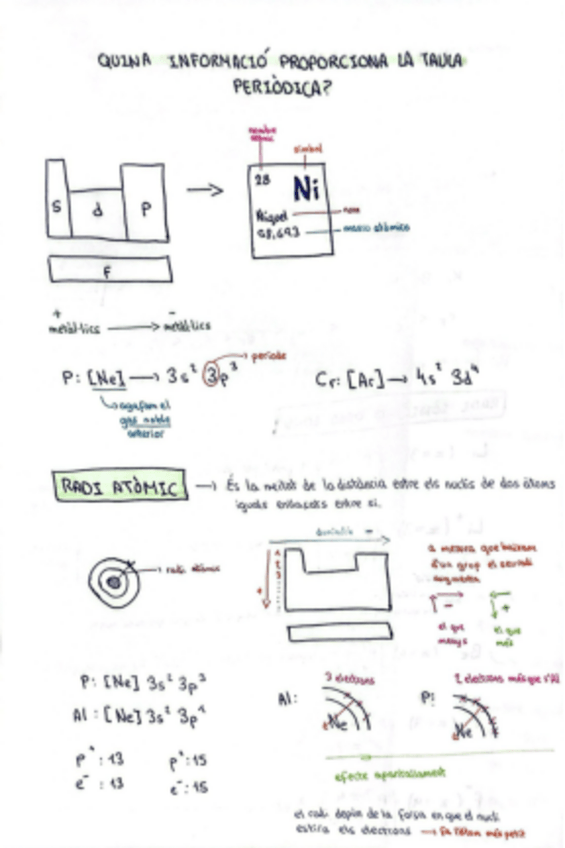 QUINA INFORMACIÓ PROPORCIONA LA TAULA
PERIÒDICA?
nombre
atòmic
símbol
28
Ni
Níquel
nom
58,693
massa atòmica
S
d
P
F
+
-
metàl·lics → metàl·lics
P: [Ne] → 3s² 3p³
període
agafem el
gas noble
anterior
Cr: [Ar] → 4s² 3d⁴
RADI ATÒMIC → És la meitat de la distància entre els nuclis de dos àtoms
iguals enllaçats entre si.
radi atòmic
disminueix -
1
2
3
+
a mesura que baixem
d'un grup el
augmenta
-
+
el que
menys
el que
més
P: [Ne] 3s² 3p³
Al: [Ne] 3s² 3p¹
p⁺: 13
p⁺: 15
e⁻: 13
e⁻: 15
Al:
3 electrons
Ne
P:
2 electrons més que l'Al
Ne
efecte apantallament
el radi depèn de la força en que el nucli
estira els electrons → fa l'àtom més petit